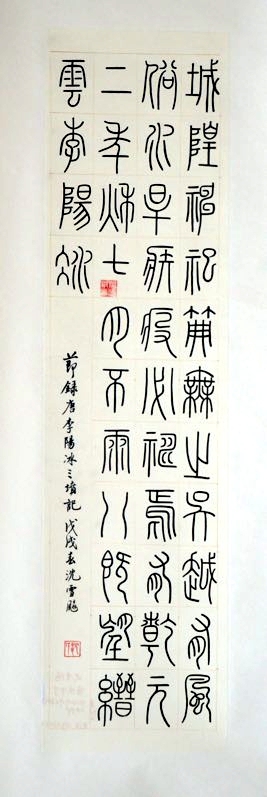 城隍神祀典無之吳越有風
俗水旱疾疫必禱焉有乾元
二年秋七月不雨八既望縉
雲李陽冰
節錄唐李陽冰三墳記 戊戌春沈雪